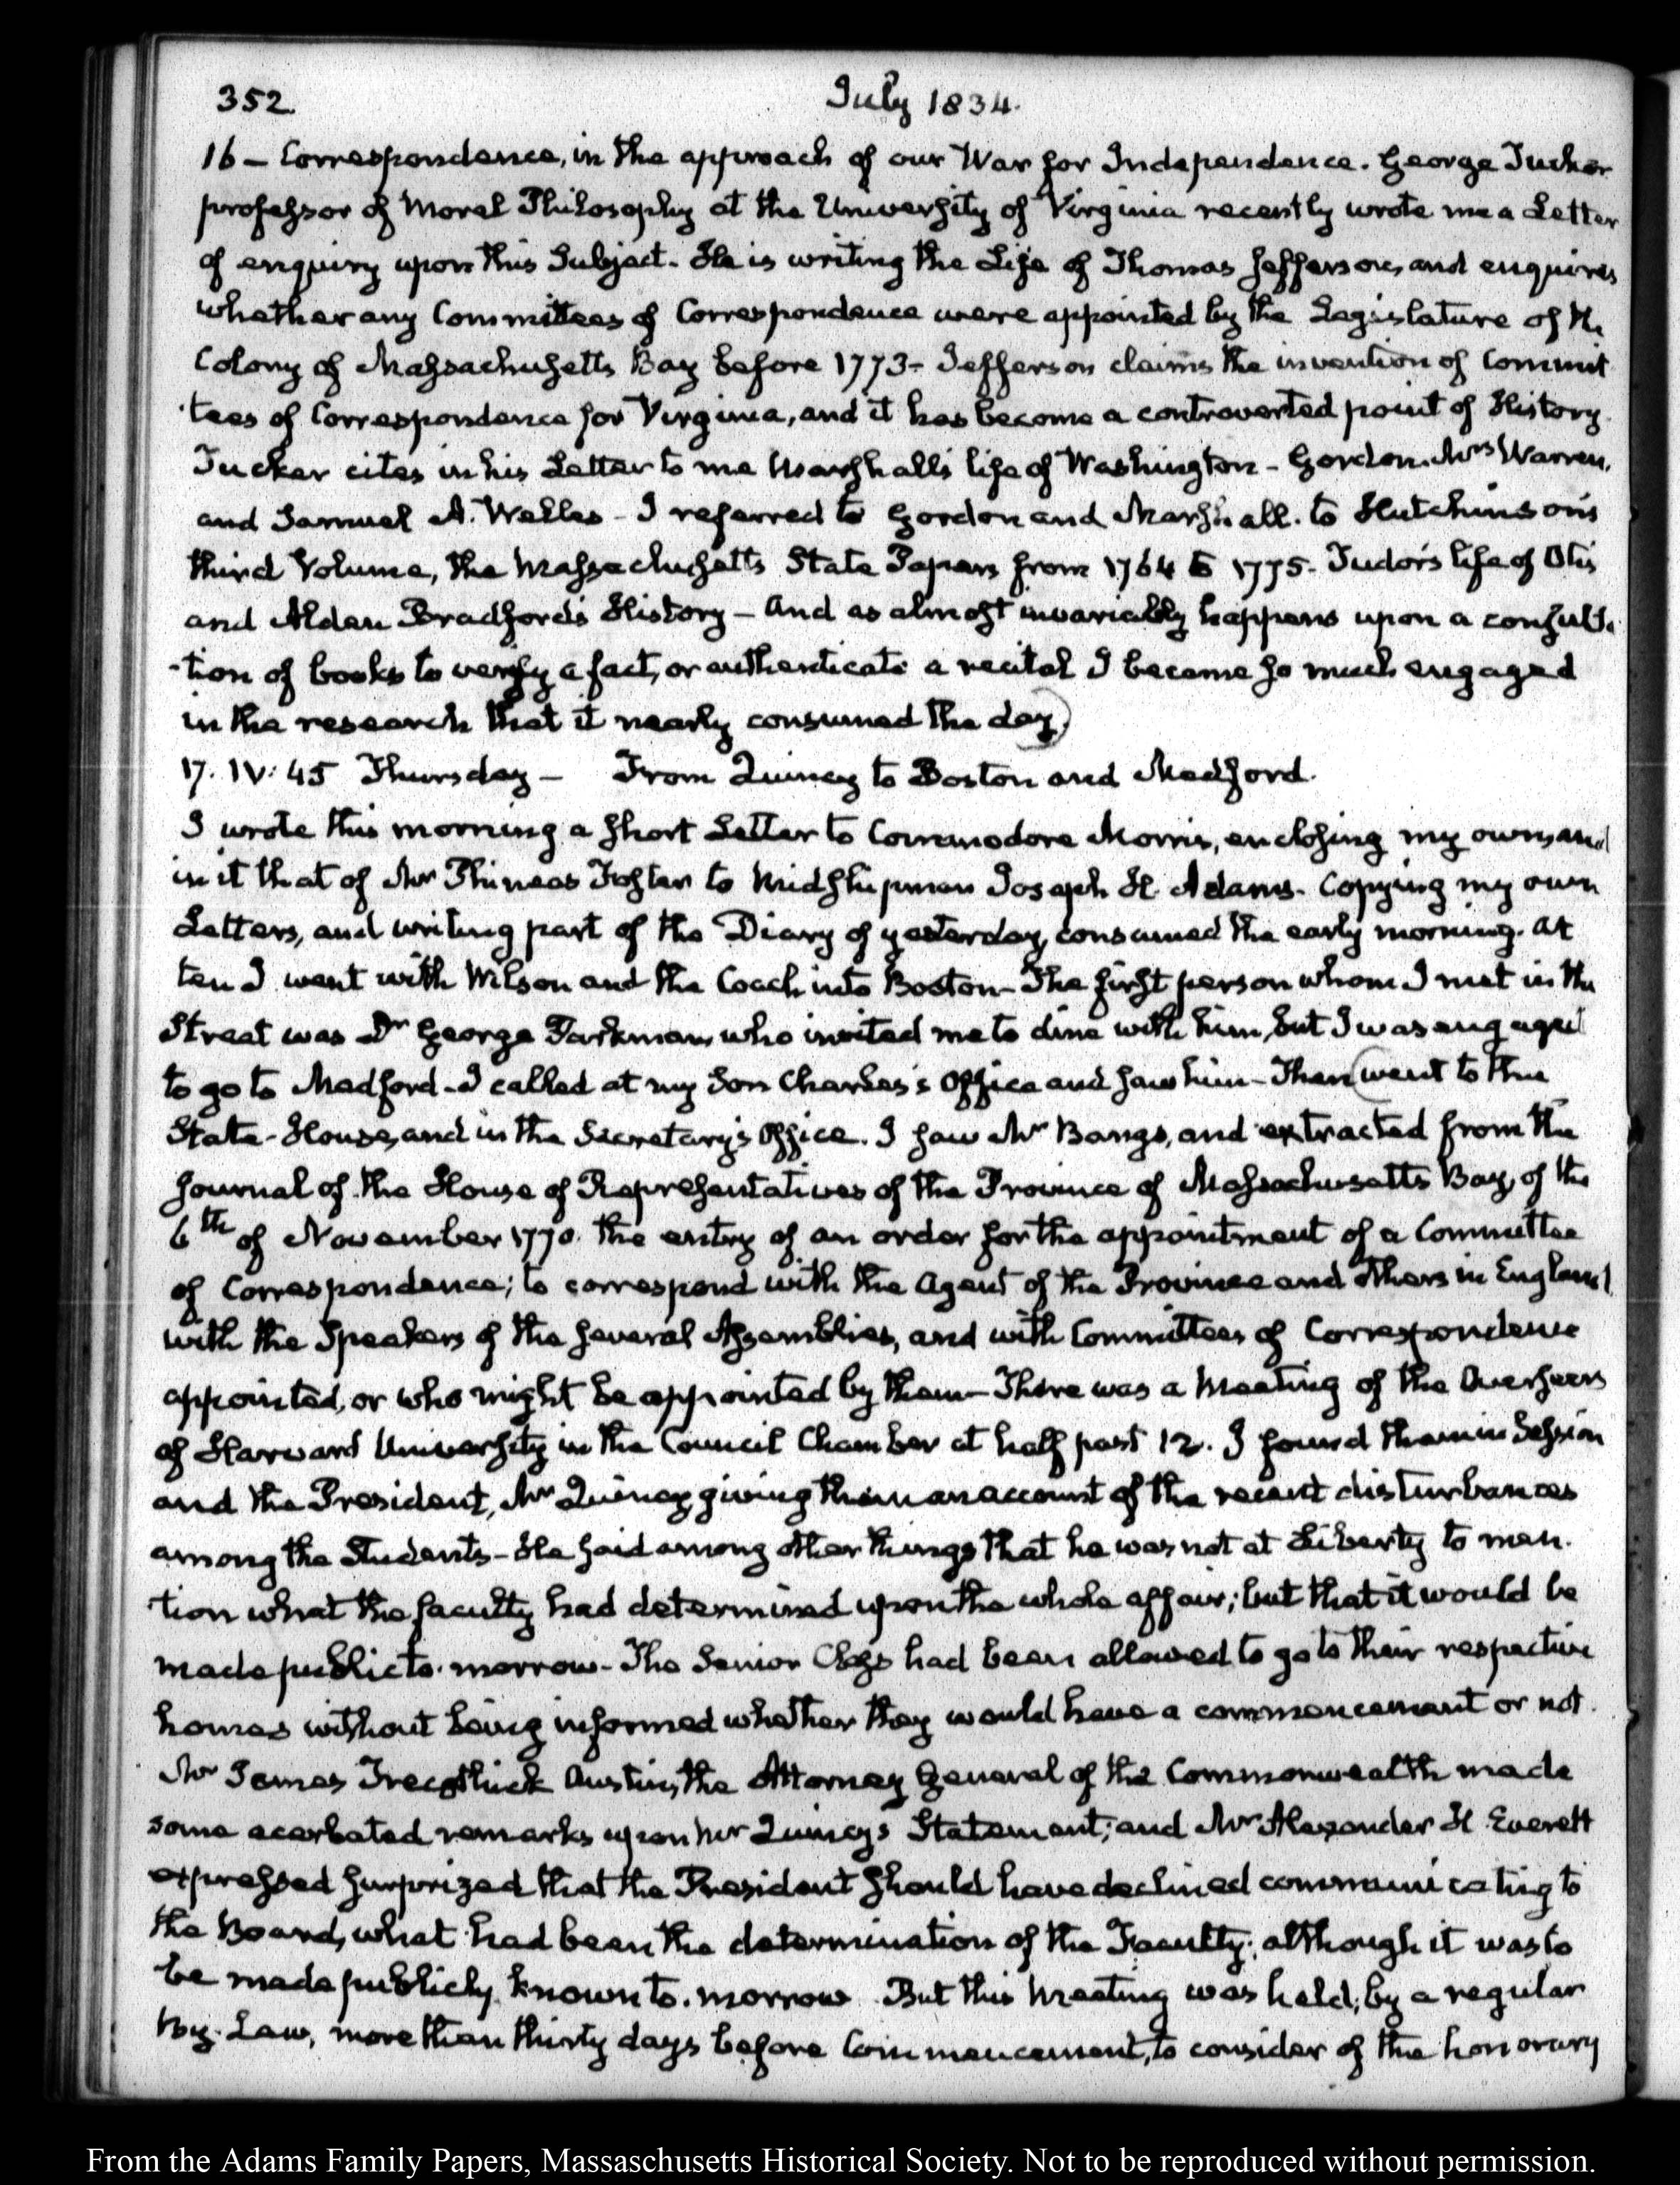 352.
July 1834.
16 – Correspondence, in the approach of our War for Independence. George Tucker
professor of Moral Philosophy at the University of Virginia recently wrote me a Letter
of enquiry upon this Subject. He is writing the Life of Thomas Jefferson, and enquires
whether any Committees of Correspondence were appointed by the Legislature of the
Colony of Massachusetts Bay before 1773 – Jefferson claims the invention of Commit
tees of Correspondence for Virginia, and it has become a controverted point of History.
Tucker cites in his Letter to me Marshall's life of Washington – Gordon. Mrs Warren,
and Samuel A. Welles – I referred to Gordon and Marshall. to Hutchinson's
third Volume, the Massachusetts State Papers from 1764 to 1775. Tudor's life of Otis
and Alden Bradford's History – And as almost invariably happens upon a consulta
-tion of books to verify a fact, or authenticate a recital I became so much engaged
in the research that it nearly consumed the day)
17. IV: 45 Thursday – From Quincy to Boston and Medford.
I wrote this morning a short Letter to Commodore Morris, enclosing my own, and
in it that of Mr Phineas Foster to Midshipman Joseph H. Adams. Copying my own
Letters, and writing part of the Diary of yesterday, consumed the early morning. At
ten I went with Wilson and the Coach into Boston – The first person whom I met in the
Street was Dr George Parkman, who invited me to dine with him, but I was engaged
to go to Medford – I called at my Son Charles's Office and saw him – Then (went to the
State-House, and in the Secretary's Office. I saw Mr Bangs, and extracted from the
Journal of the House of Representatives of the Province of Massachusetts Bay, of the
6th of November 1770. the entry of an order for the appointment of a Committee
of Correspondence; to correspond with the Agent of the Province and others in England
with the Speakers of the several Assemblies, and with Committees of Correspondence
appointed, or who might be appointed by them – There was a Meeting of the Overseers
of Harvard University in the Council Chamber at half past 12. I found them in Session
and the President, Mr Quincy giving them an account of the recent disturbances
among the Students – He said among other things that he was not at Liberty to men-
tion what the faculty had determined upon the whole affair; but that it would be
made public to-morrow – The Senior Class had been allowed to go to their respective
homes without being informed whether they would have a commencement or not.
Mr James Trecothick Austin, the Attorney General of the Commonwealth made
some acerbated remarks upon Mr Quincy's Statement; and Mr Alexander H. Everett
expressed surprized that the President should have declined communicating to
the Board, what had been the determination of the Faculty; although it was to
be made publicly known to-morrow. But this Meeting was held, by a regular
by-Law, more than thirty days before Commencement, to consider of the honorary
From the Adams Family Papers, Massaschusetts Historical Society. Not to be reproduced without permission.